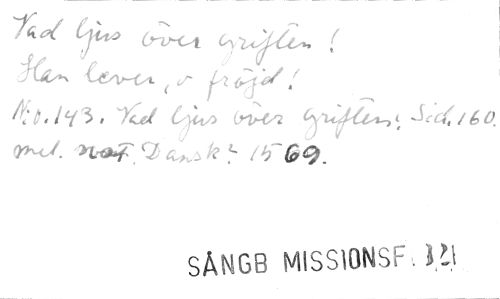 Vad ljus över griften!
Han lever, o fröjd!
N:o. 143. Vad ljus över griften! Sid. 160.
mel. Dansk? 1569.
SÅNGB MISSIONSF. 1321